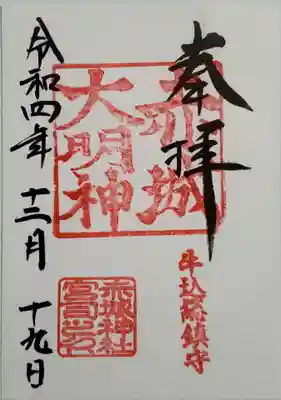 奉拝
赤城
大明神
牛込總鎮守
赤城神社
宮司之印
令和四年 十二月 十九日